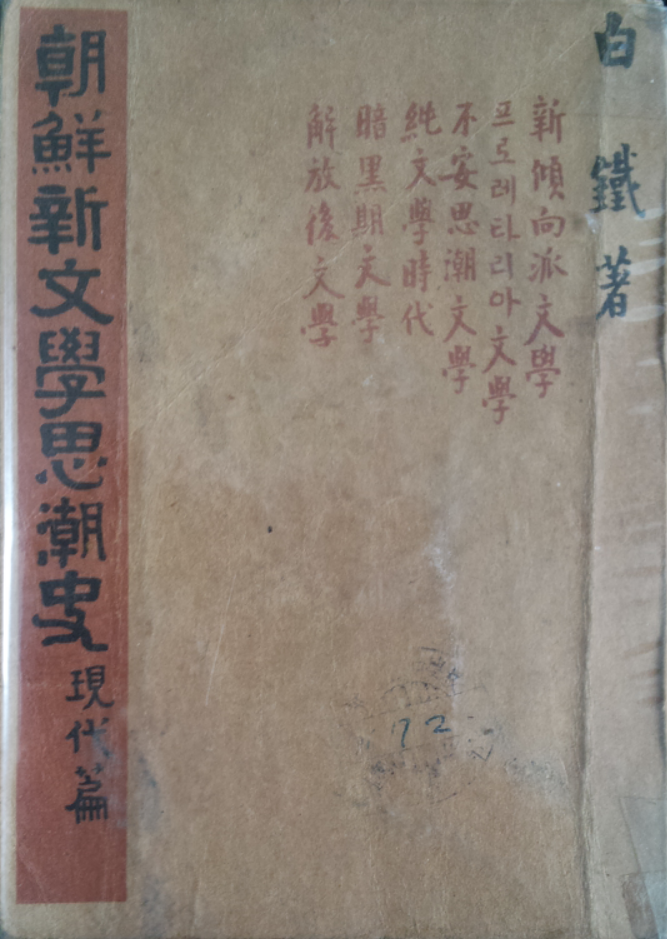 白鐵著
新傾向派文學
프로레타리아文學
不安思潮文學
純文學時代
暗黑期文學
解放後文學
朝鮮新文學思潮史
現代篇
72